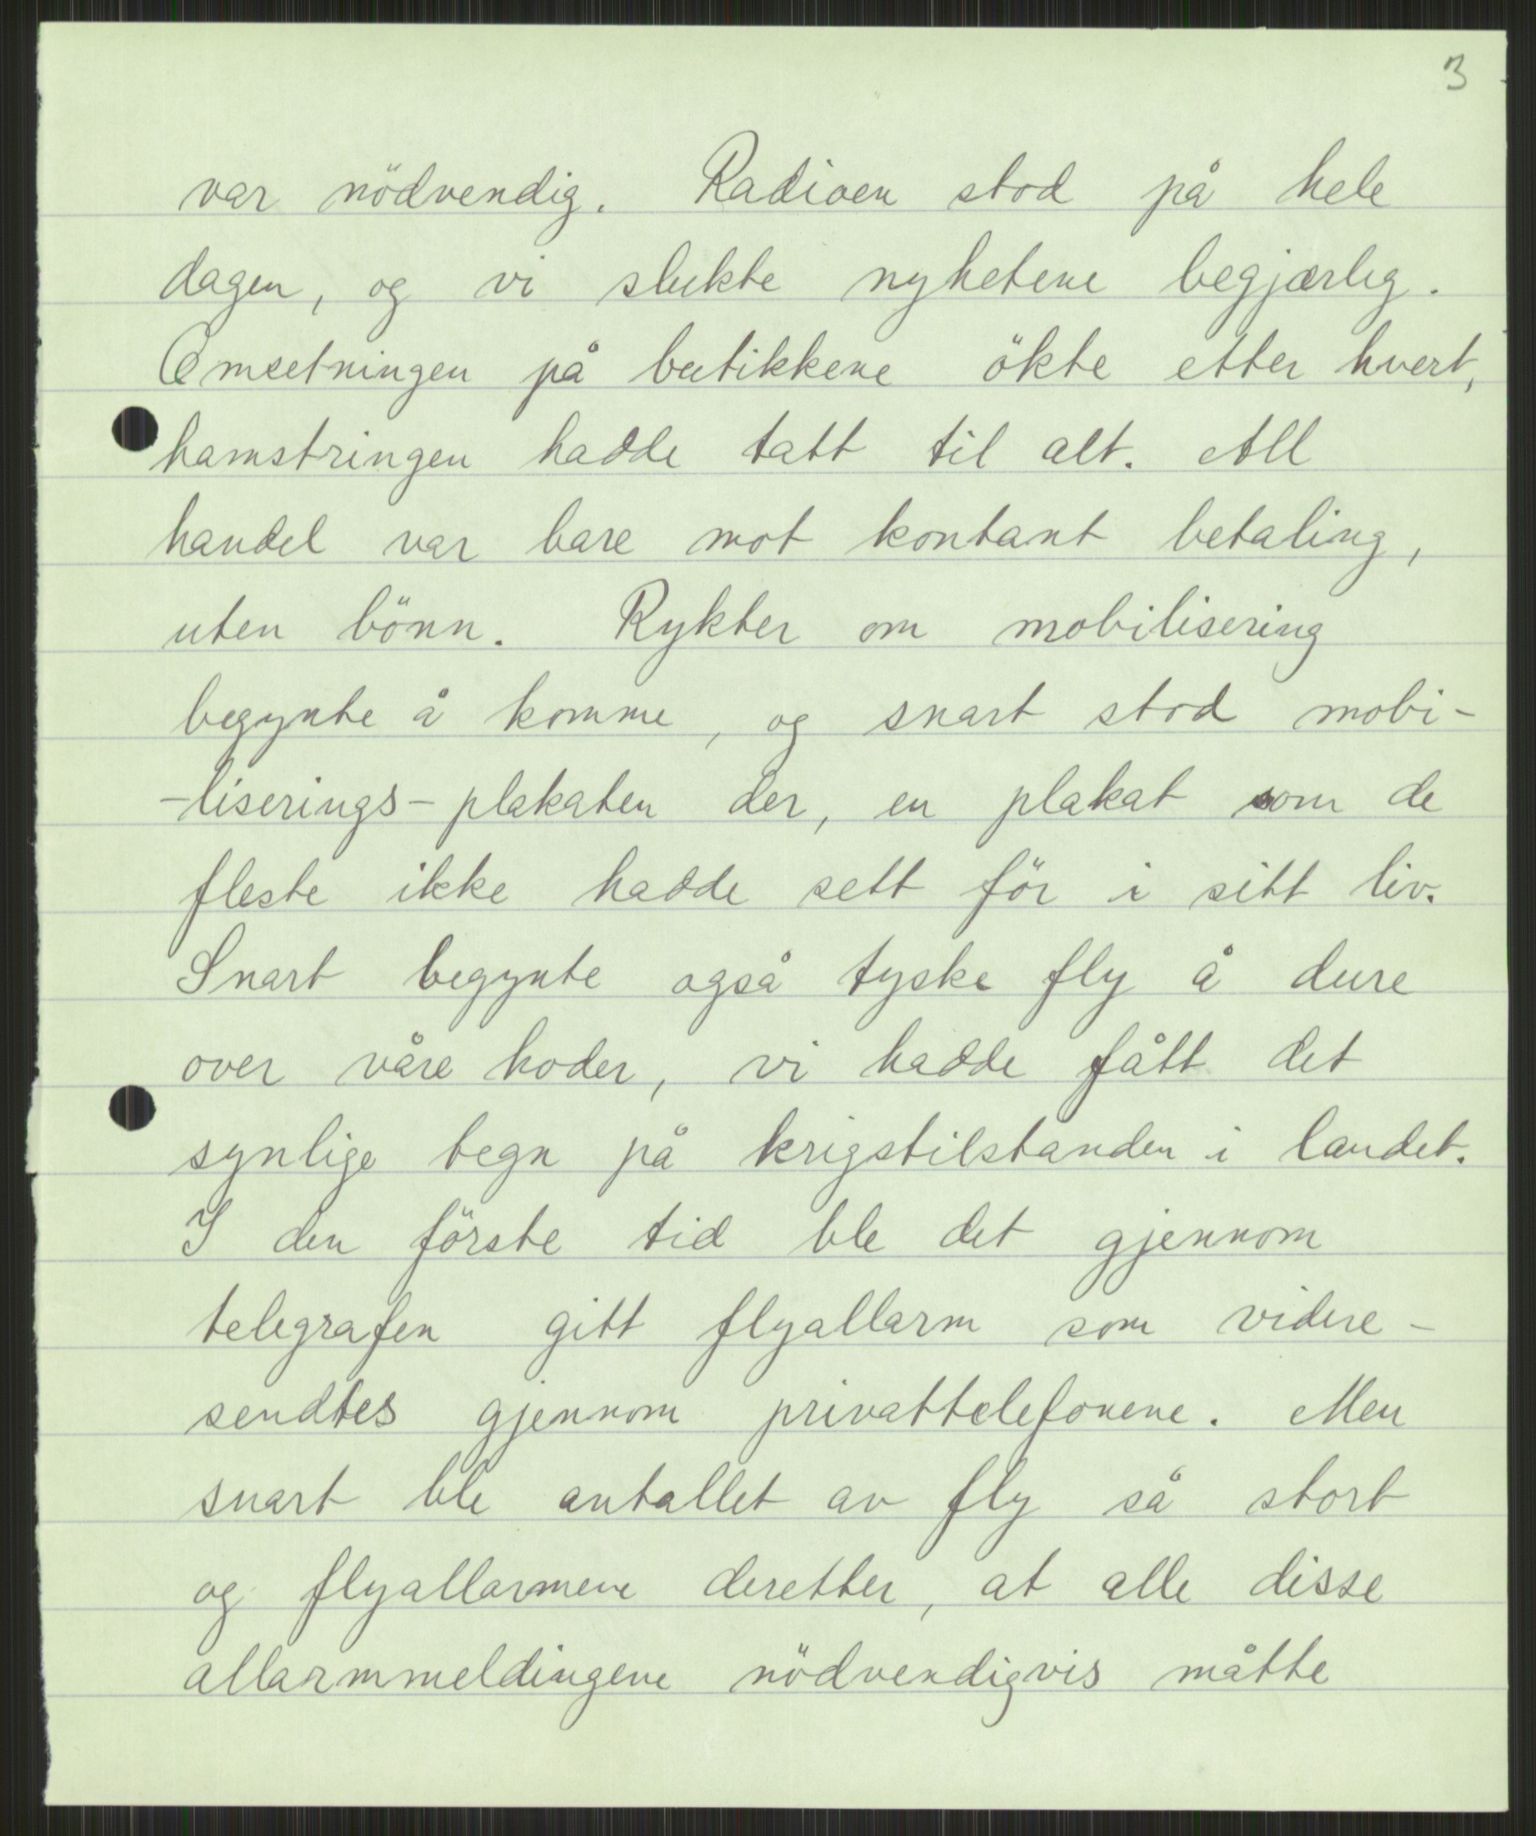 3
var nödvendig. Radioen stod på hele
dagen, og vi slukte nyhetene begjærlig.
Omsetningen på butikkene ökte etter hvert,
hamstringen hadde tatt til alt. All
handel var bare mot kontant betaling,
uten bönn. Rykter om mobilisering
begynte å komme, og snart stod mobi-
-liserings-plakaten der, en plakat som de
fleste ikke hadde sett för i sitt liv.
Snart begynte også tyske fly å dure
over våre hoder, vi hadde fått det
synlige tegn på krigstilstanden i landet.
I den förste tid ble det gjennom
telegrafen gitt flyallarm som videre-
sendtes gjennom privattelefonene. Men
snart ble antallet av fly så stort
og flyallarmene deretter, at alle disse
allarmmeldingene nödvendigvis måtte